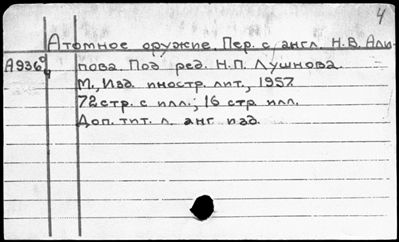 4
Атомное оружие. Пер. с англ. Н.В. Али-
А936 пова. Под ред. Н.П. Лушнова.
М., Изд. иностр. лит., 1957.
72 стр. с илл.; 16 стр илл.
Доп. тит. л. анг изд.